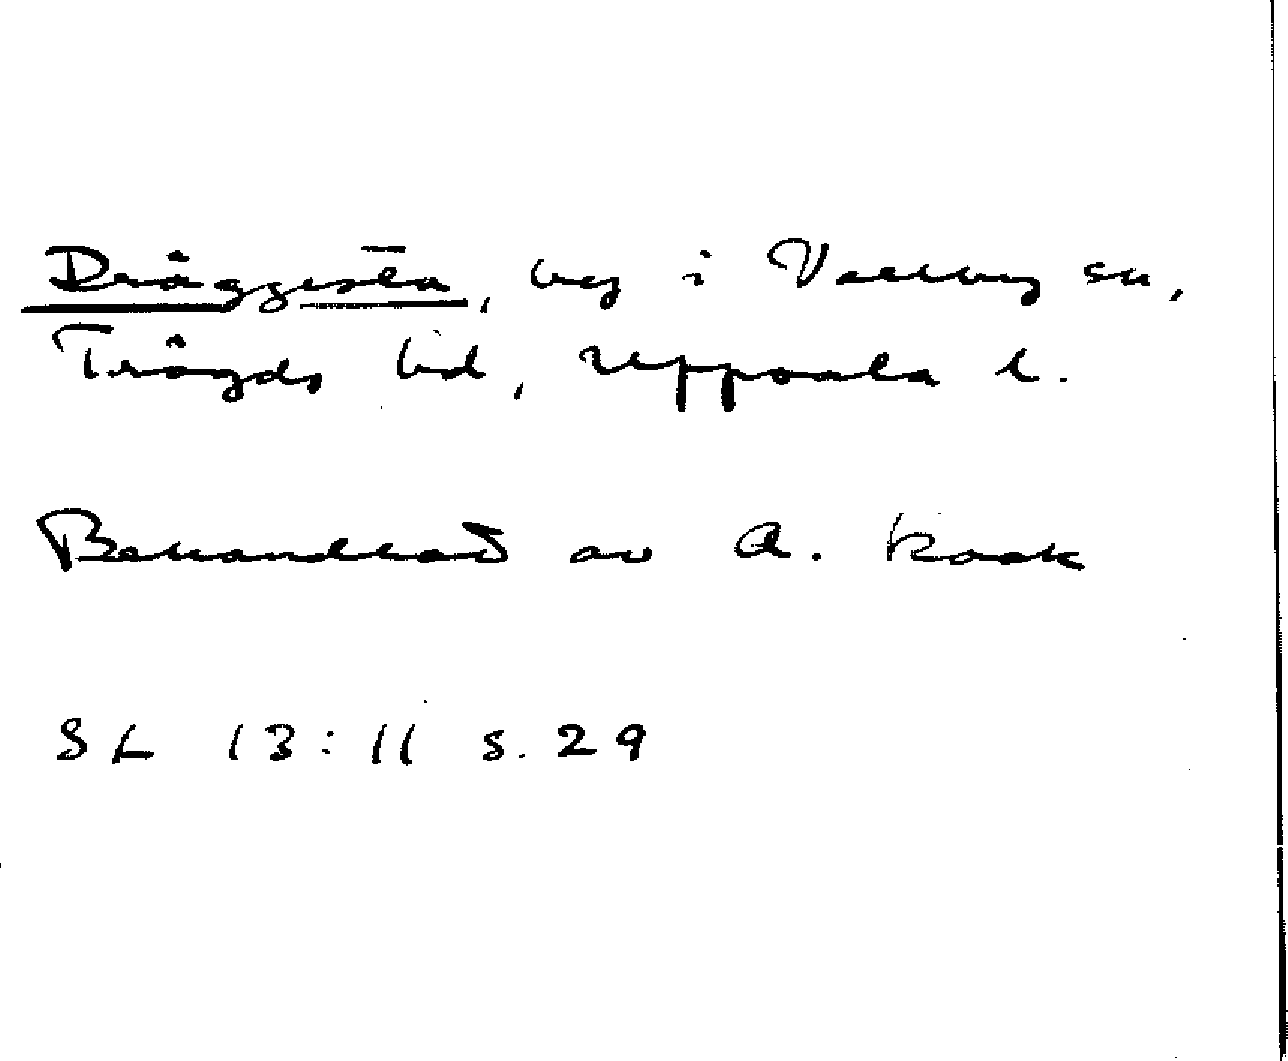 Dråggesta, by i Vallby sn,
Trögds hd, Uppsala l.
Behandlad av A. Kock
SL 13:11 s. 29